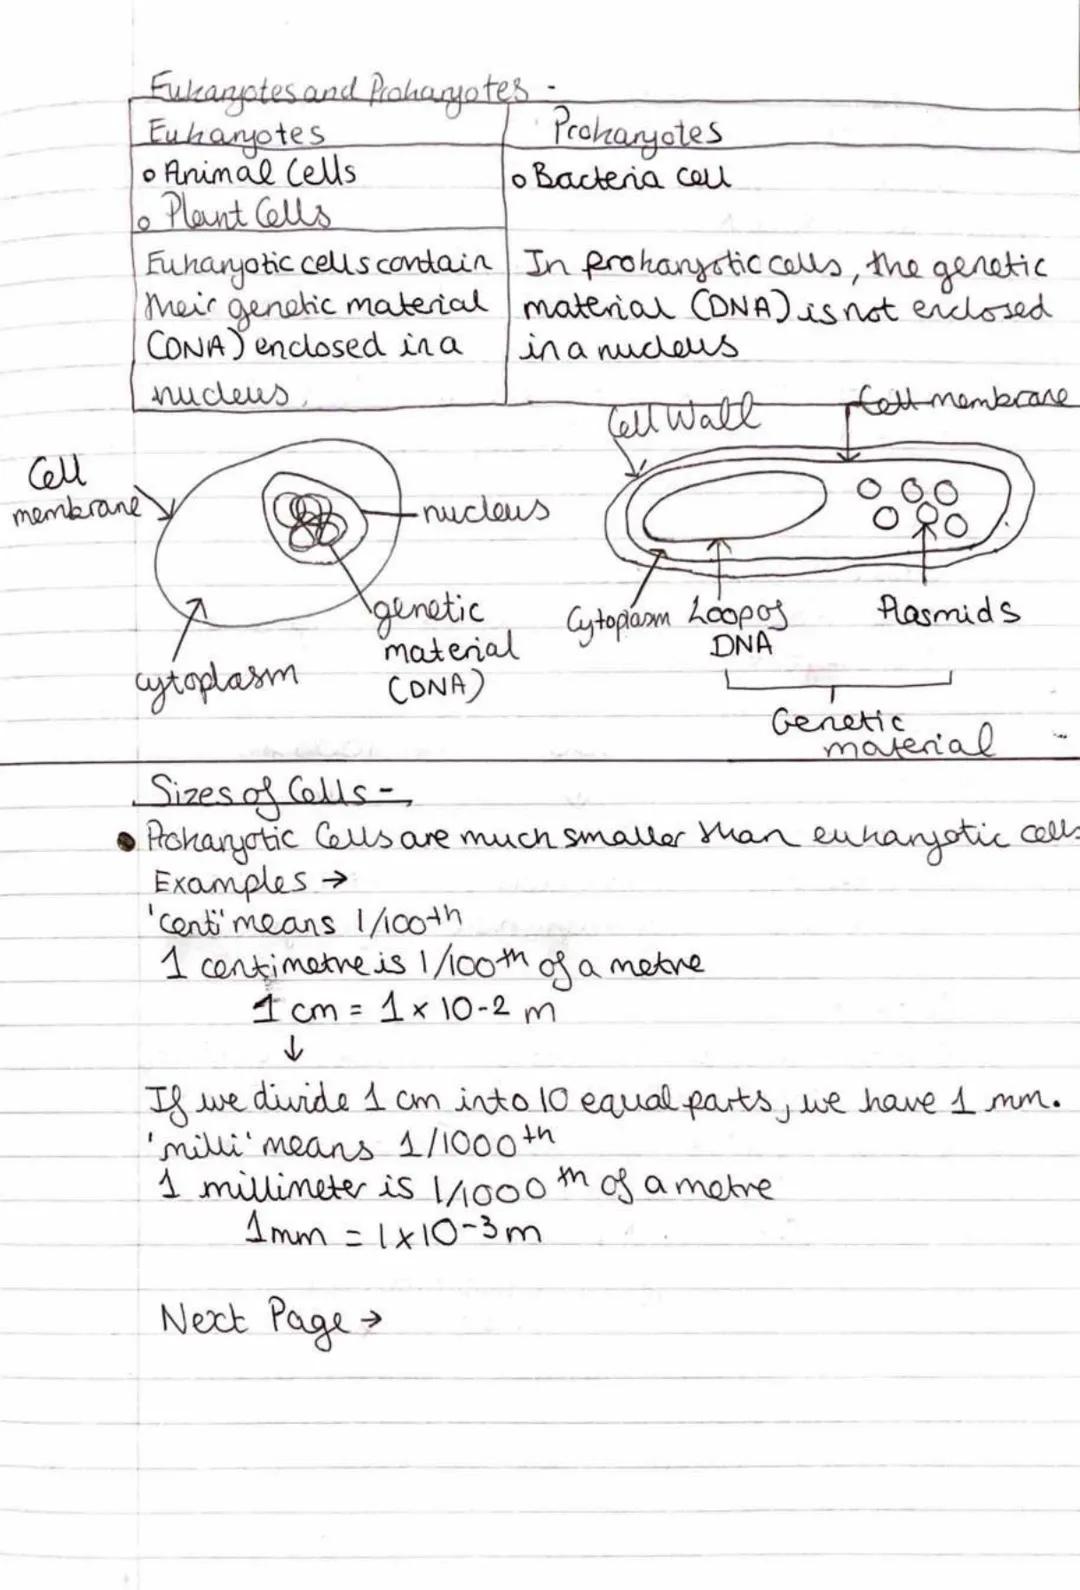 Eukaryotes and Prokaryotes -
Eukaryotes
Prokaryotes
o Animal Cells
o Plant Cells
o Bacteria cell
Eukaryotic cells contain
their genetic material
(DNA) enclosed in a
nucleus.
In prokaryotic cells, the genetic
material (DNA) is not enclosed
in a nucleus
Cell
membrane
nucleus
genetic
material
(DNA)
cytoplasm
Cell Wall
Cell membrane
Cytoplasm
Loop of
DNA
Plasmids
Genetic
material
Sizes of Cells -
• Prokaryotic Cells are much smaller than eukaryotic cells
Examples →
'centi' means 1/100th
1 centimetre is 1/100th of a metre
1 cm = 1 x 10-2 m
↓
If we divide 1 cm into 10 equal parts, we have 1 mm.
'milli' means 1/1000th
1 millimeter is 1/1000th of a metre
1mm = 1x10-3m
Next Page →